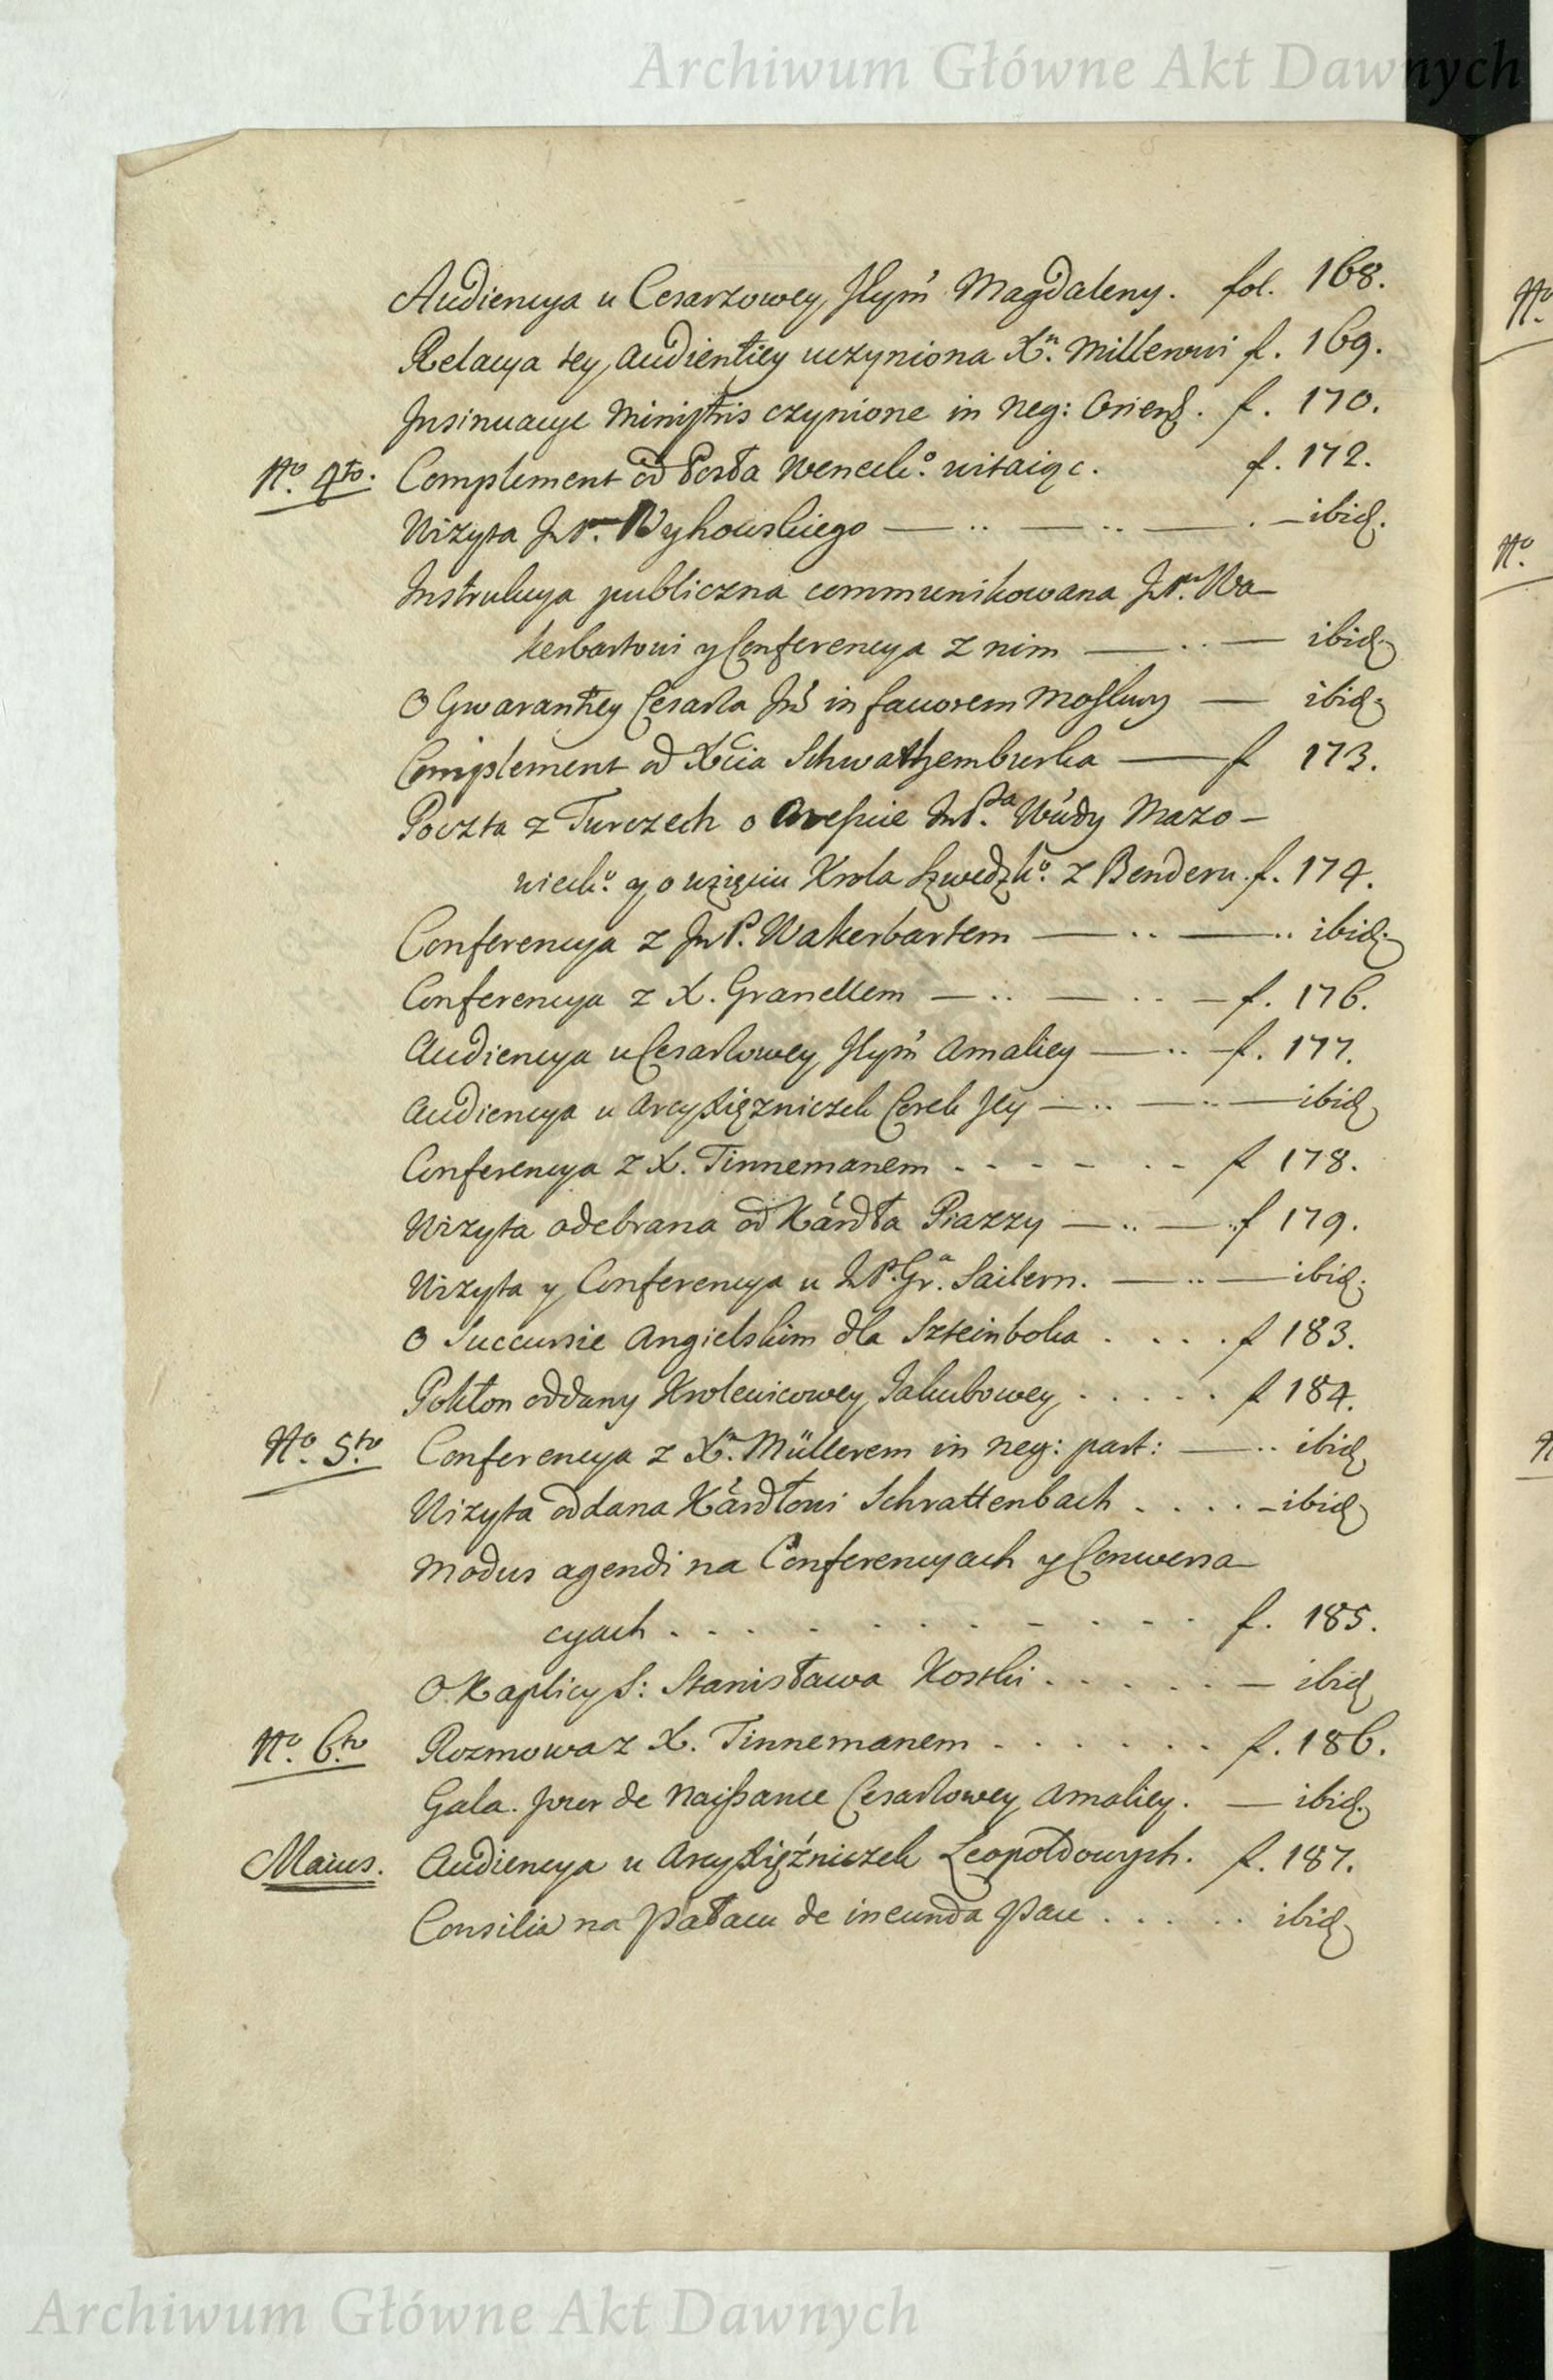 Archiwum Główne Akt Dawnych
Audiencya u Cesarzowey Jeym̃ Magdaleny. fol. 168.
Relacya tey Audientiey uczyniona Xn. Millerowi f. 169.
Insinuacye Ministris czynione in Neg: Oriend. f. 170.
No. 4to. Complement od Posła Weneck:o witaiąc. f. 172.
Wizyta Wyhowskiego — .. — .. — . – ibid.
Instrukcya publiczna communikowana Wa-
kerbartowi y Conferencya z nim — .. — ibid.
O Gwarantiey Cesarza in favorem Moskwy — ibid.
Complement od Xcia Schwartzemburka — f 173.
Poczta z Turczech o Areście Mazo-
wieck:o y o wzięciu Krola Szwedzk:o z Benderu. f. 174.
Conferencya z Wakerbartem — .. — .. ibid.
Conferencya z X. Granellem — .. — .. – f. 176.
Audiencya u Cesarzowey Jeym̃ Amaliey — .. – f. 177.
Audiencya u Arcyxiężniczek Corek Jey — .. — .. — ibid
Conferencya z X. Tinnemanem - - - - - - f 178.
Wizyta odebrana od Kardła Piazzy — .. — .. f 179.
Wizyta y Conferencya u Gra. Sailern. — .. — ibid.
O Succursie Angielskim dla Szteinboka . . . . f 183.
Pokłon oddany Krolewicowey Jakubowey . . . . . f 184.
No. 5to Conferencya z Xn. Müllerem in neg: part: — .. ibid
Wizyta oddana Kardłowi Schrattenbach . . . . – ibid
Modus agendi na Conferencyach y Conwersa-
cyach . . . . . . . . . . f. 185.
O Kaplicy S: Stanisława Kostki . . . . . — ibid
No. 6to Rozmowa z X. Tinnemanem . . . . . . f. 186.
Gala. jour de Naissance Cesarzowey Amaliey. — ibid.
Maius. Audiencya u Arcyxięźniczek Leopoldowych. f. 187.
Consilia na Pałacu de ineunda Pace . . . . . ibid
Archiwum Główne Akt Dawnych